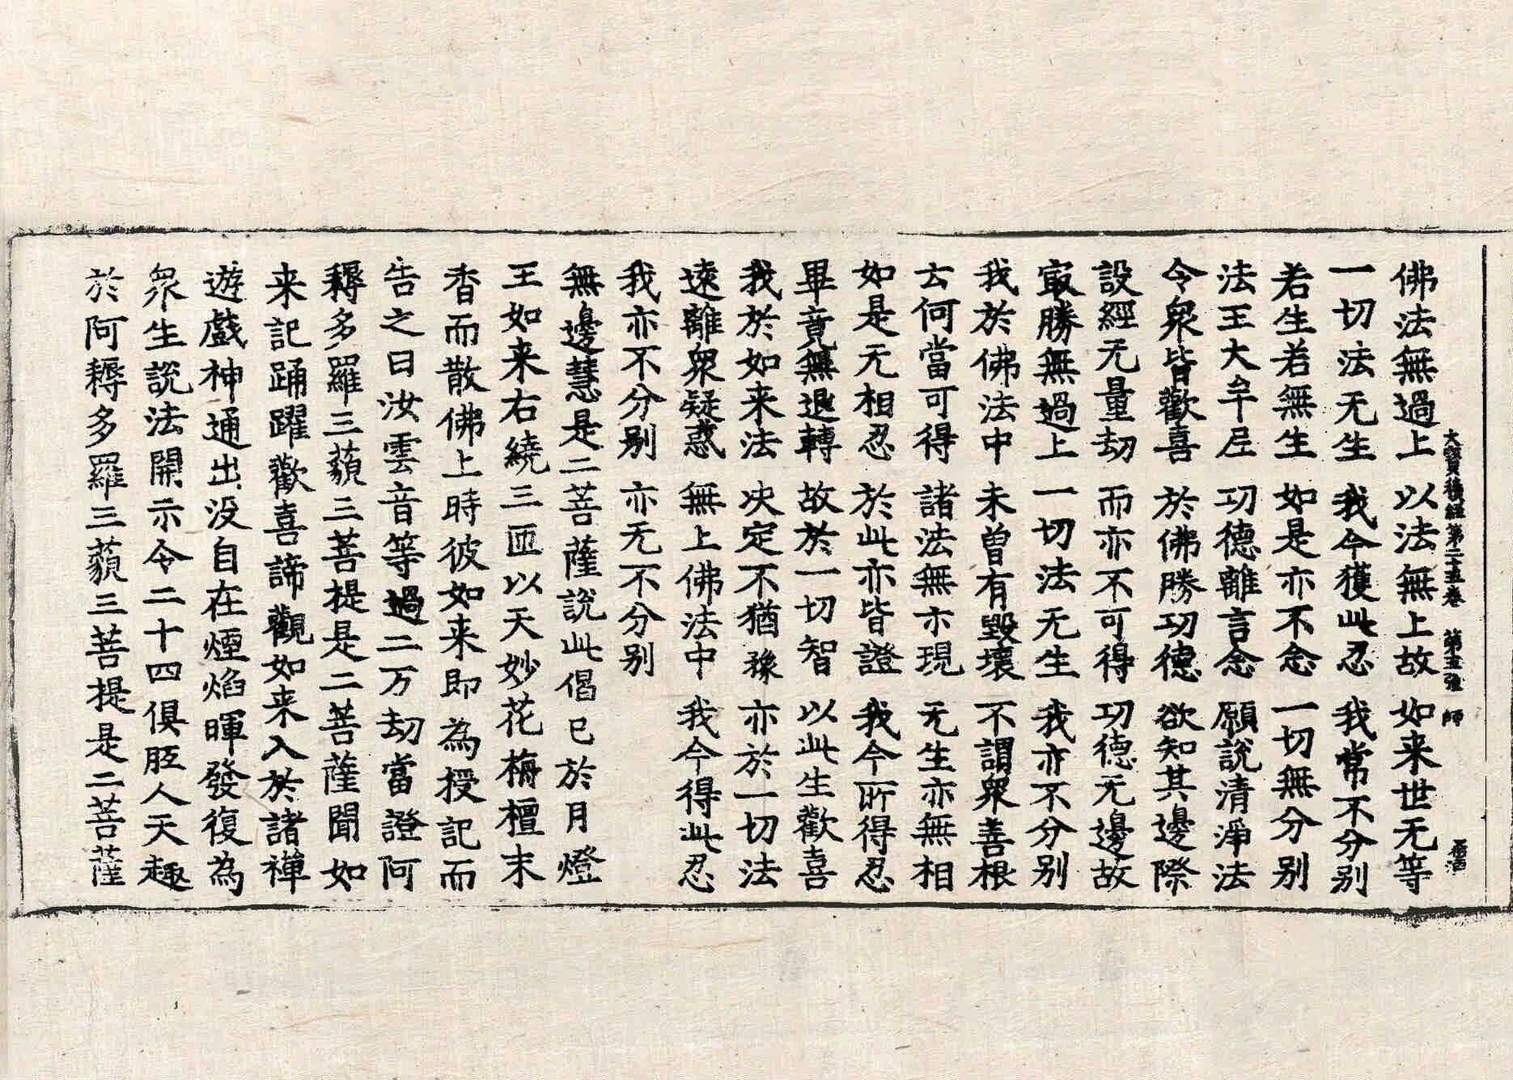 大寶積經第二十五卷 第五張 師
佛法無過上 以法無上故 如来世无等
一切法无生 我今獲此忍 我常不分别
若生若無生 如是亦不念 一切無分别
法王大牟尼 功德離言念 願說清淨法
令衆皆歡喜 於佛勝功德 欲知其邊際
設經无量劫 而亦不可得 功德无邊故
㝡勝無過上 一切法无生 我亦不分别
我於佛法中 未曾有毀壞 不謂衆善根
去何當可得 諸法無亦現 无生亦無相
如是无相忍 於此亦皆證 我今所得忍
畢竟無退轉 故於一切智 以此生歡喜
我於如来法 决定不猶豫 亦於一切法
遠離衆疑惑 無上佛法中 我今得此忍
我亦不分别 亦无不分别
無邊慧是二菩薩說此偈已於月燈
王如来右繞三匝以天妙花栴檀末
香而散佛上時彼如来即為授記而
告之曰汝雲音等過二万劫當證阿
耨多羅三藐三菩提是二菩薩聞如
来記踊躍歡喜諦觀如来入於諸禪
遊戲神通出没自在煙焰暉發復為
衆生說法開示令二十四俱胝人天趣
於阿耨多羅三藐三菩提是二菩薩